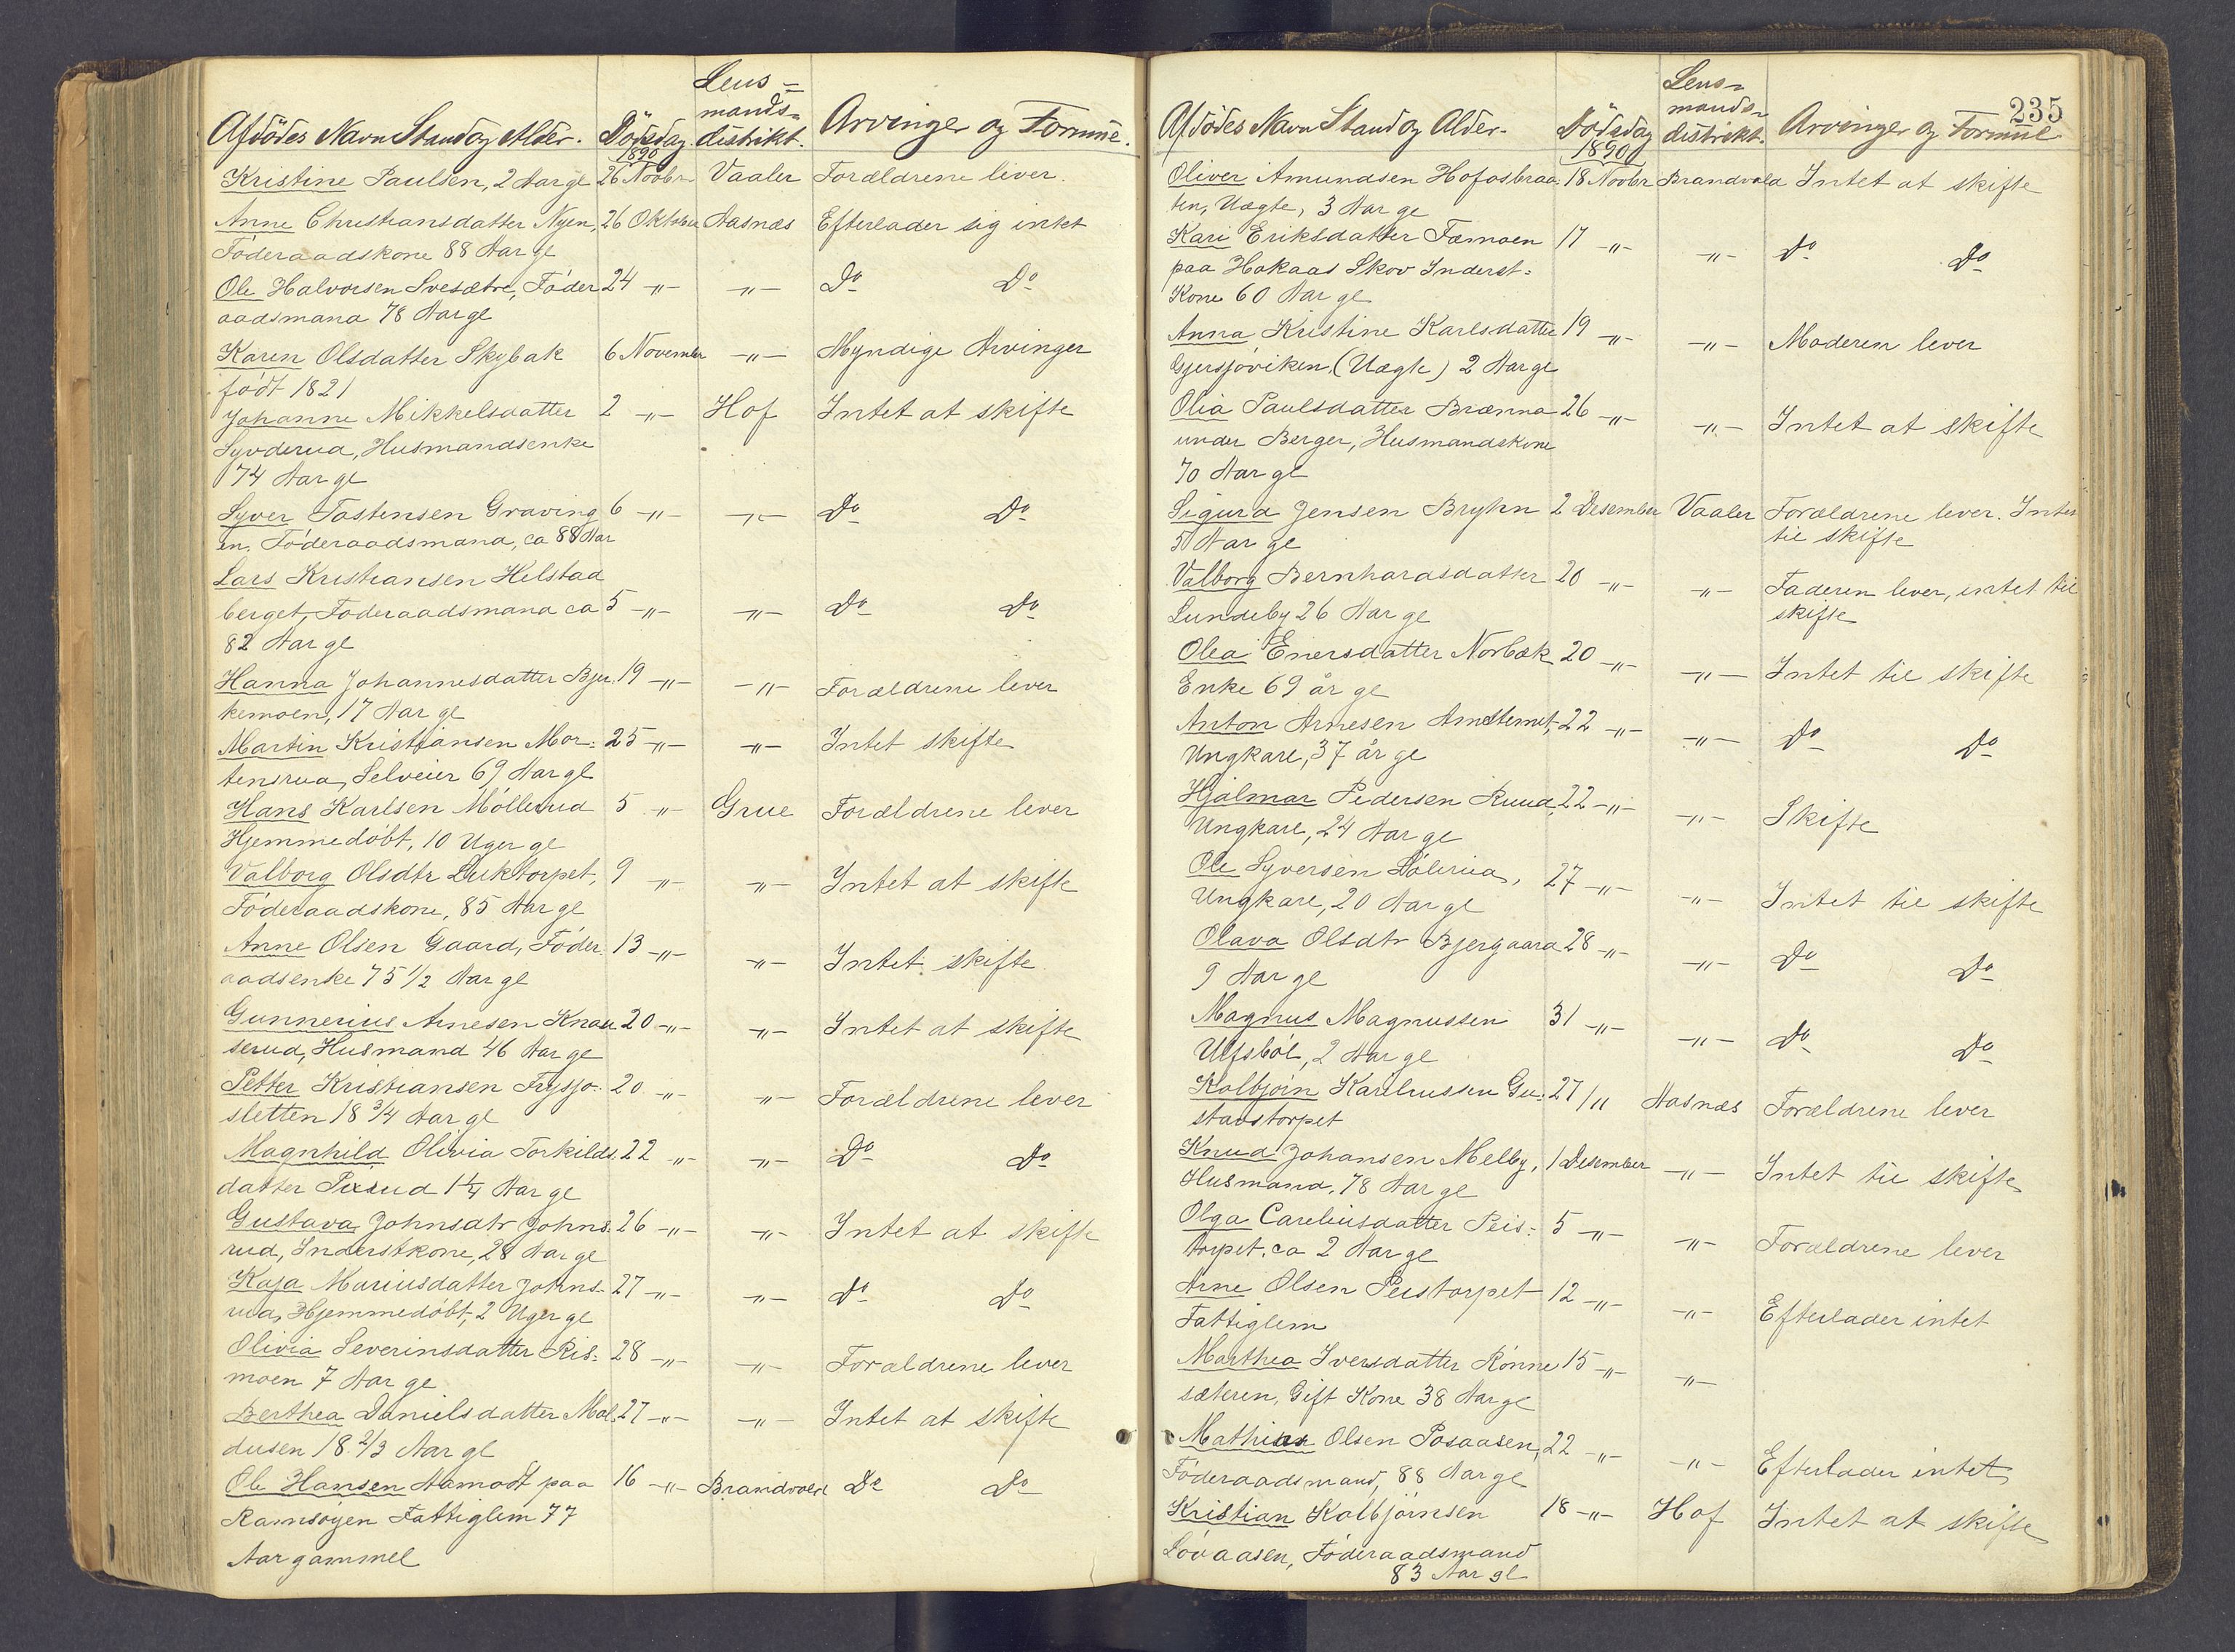 Lens-
mands-
Afdödes Navn Stand og Alder. Dödsdag distrikt. Arvinger og Formue.
1890
Kristine Paulsen, 2 Aar gl 26 Novbr Vaaler Forældrene lever.
Anne Christiansdatter Nyen, 26 Oktober Aasnæs Efterlader sig intet
Föderaadskone 88 Aar gl
Ole Halvorsen Svesætre, Föder 24 -"- -"- Do Do
aadsmand 78 Aar gl
Karen Olsdatter Skybak 6 November -"- Myndige Arvinger
född 1821
Johanne Mikkelsdatter 2 -"- Hof Intet at skifte
Syvderud, Husmandsenke
74 Aar gl
Syver Tostensen Graving 6 -"- -"- Do Do
en, Föderaadsmand, ca 88 Aar
Lars Kristiansen Helstad
berget, Föderaadsmand ca 5 -"- -"- Do Do
82 Aar gl
Hanna Johannesdatter Bjer 19 -"- -"- Forældrene lever
kemoen, 17 Aar gl
Martin Kristiansen Mor= 25 -"- -"- Intet skifte
tensrud, Selveier 69 Aar gl
Hans Karlsen Möllerud 5 " Grue Forældrene lever
Hjemmedöbt, 10 Uger gl
Valborg Olsdtr Luktorpet, 9 -"- -"- Intet at skifte
Föderaadskone, 85 Aar gl
Anne Olsen Gaard, Föder 13 -"- -"- Intet skifte
aadsenke 75 1/2 Aar gl
Gunnerius Arnesen Knau 20 -"- -"- Intet at skifte
serud, Husmand 46 Aar gl
Petter Kristiansen Frysjo- 20 -"- -"- Forældrene lever
sletten 18 3/4 Aar gl
Magnhild Olivia Torkilds 22 -"- -"- Do Do
datter Pusud 1 1/4 Aar gl
Gustava Johnsdtr Johns 26 -"- -"- Intet at skifte
rud, Inderstkone, 28 Aar gl
Kaja Mariusdatter Johns- 27 -"- -"- Do Do
rud, Hjemmedöbt, 2 Uger gl
Olivia Severinsdatter Ris= 28 -"- -"- Forældrene lever
moen 7 Aar gl
Berthea Danielsdatter Mol 27 -"- -"- Intet at skifte
dusen 18 2/3 Aar gl
Ole Hansen Aamodt paa 16 -"- Brandvold Do Do
Ramsöyen Fattiglem 77
Aar gammel
235
Lens-
mands-
Afdödes Navn Stand og Alder- Dödsdag distrikt. Arvinger og Formue
1890
Oliver Amundsen Hofosbraa 18 Novbr Brandvold Intet at skifte
ten, Uægte, 3 Aar gl
Kari Eriksdatter Fæmoen 17 -"- -"- Do Do
paa Hokaas Skov Inderst=
Kone 60 Aar gl
Anna Kristine Karlsdatter 19 -"- -"- Moderen lever
Gjersjöviken, (Uægte) 2 Aar gl
Olia Paulsdatter Brænna 26 -"- -"- Intet at skifte
under Berger, Husmandskone
70 Aar gl
Sigurd Jensen Bryhn 2 Desember Vaaler Forældrene lever. Intet
5 Aar gl til skifte
Valborg Bernhardsdatter 20 -"- -"- Faderen lever, intet til
Lundeby 26 Aar gl skifte
Olea Enersdatter Norbæk 20 -"- -"- Intet til skifte
Enke 69 år gl
Anton Arnesen Amdtemet, 22 -"- -"- Do Do
Ungkare, 37 år gl
Hjalmar Pedersen Ruud, 22 -"- -"- Skifte
Ungkare, 24 Aar gl
Ole Syversen Dölerud, 27 -"- -"- Intet til skifte
Ungkare, 20 Aar gl
Olava Olsdtr Bjergaard 28 -"- -"- Do Do
9 Aar gl
Magnus Magnussen 31 -"- -"- Do Do
Ulfsböl, 2 Aar gl
Kolbjörn Kareliussen Gu- 27/11 Aasnæs Forældrene lever
stavstorpet
Knud Johansen Melby, 1 Desember -"- Intet til skifte
Husmand, 78 Aar gl
Olga Careliusdatter Peis= 5 -"- -"- Forældrene lever
torpet, ca 2 Aar gl
Arne Olsen Peistorpet 12 -"- -"- Efterlader intet
Fattiglem
Marthea Iversdatter Rönne 15 -"- -"-
sæteren, Gift Kone 38 Aar gl
Mathias Olsen Posaasen, 22 -"- -"- Efterlader intet
Föderaadsmand, 88 Aar gl
Kristian Kolbjörnsen 18 -"- Hof Intet at skifte
Lövaasen, Föderaadsmand
83 Aar gl